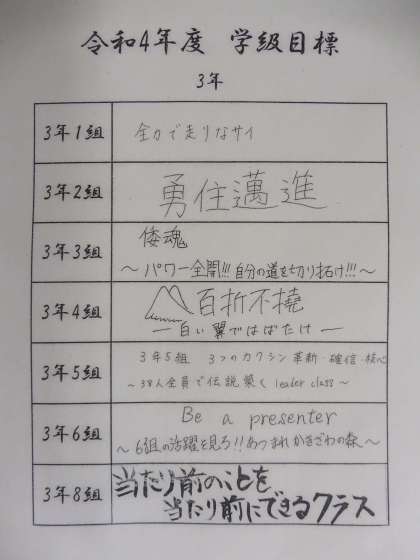 令和4年度 学級目標
3年
3年1組 全力で走りなサイ
3年2組 勇往邁進
3年3組 倭魂
～パワー全開!!!自分の道を切り拓け!!!～
3年4組 百折不撓
―白い翼ではばたけ―
3年5組 3年5組 3つのカクシン 革新・確信・核心
～38人全員で伝説築く leader class～
3年6組 Be a presenter
～6組の活躍を見ろ!!あつまれかきざわの森～
3年8組 当たり前のことを
当たり前にできるクラス